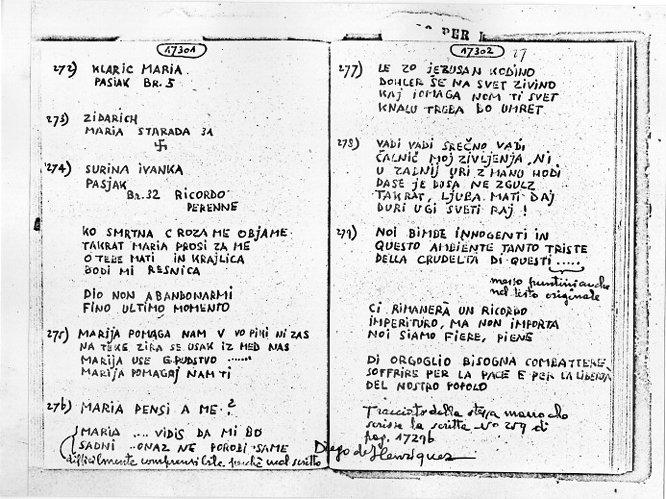 PER
17301
272) KLARIC MARIA
PASJAK BR. 5
273) ZIDARICH
MARIA STARADA 31
卐
274) SURINA IVANKA
PASJAK
BR. 32 RICORDO
PERENNE
KO SMRTNA GROZA ME OBJAME
TAKRAT MARIA PROSI ZA ME
O TEBE MATI IN KRAJLICA
BODI MI RESNICA
DIO NON ABANDONARMI
FINO ULTIMO MOMENTO
275) MARIJA POMAGA NAM V
NA TEKE ZIRA SE USAK IZ MED NAS
MARIJA USE
MARIJA POMAGAJ NAM TI
276) MARIA PENSI A ME ?
MARIA .... VIDIS DA MI BO
SADNI .. ONAZ NE POROBI SAME
difficilmente comprensibile perchè mal scritto
17302
27
277) LE ZO JEZUSAN KODINO
DOHLER SE NA SVET ZIVINO
KAJ POMAGA NOM TI SVET
KNALU TREBA BO UMRET
278) VADI VADI SREČNO VADI
ČALNIČ MOJ ZIVLJENJA, NI
U ZADNIJ URI Z MANO HODI
DASE JE DOSA NE ZGULZ
TAKRAT, LJUBA MATI DAJ
DURI UGI SVETI RAJ !
279) NOI BIMBE INNOGENTI IN
QUESTO AMBIENTE TANTO TRISTE
DELLA CRUDELTÀ DI QUESTI .....
messo puntini anche
nel testo originale
CI RIMANERÀ UN RICORDO
IMPERITURO, MA NON IMPORTA
NOI SIAMO FIERE, PIENE
DI ORGOGLIO BISOGNA COMBATTERE
SOFFRIRE PER LA PACE E PER LA LIBERTÀ
DEL NOSTRO POPOLO
Tracciato dalla stessa mano che
scrisse la scritta No 259 di
pag. 17296
Diego de Henriquez